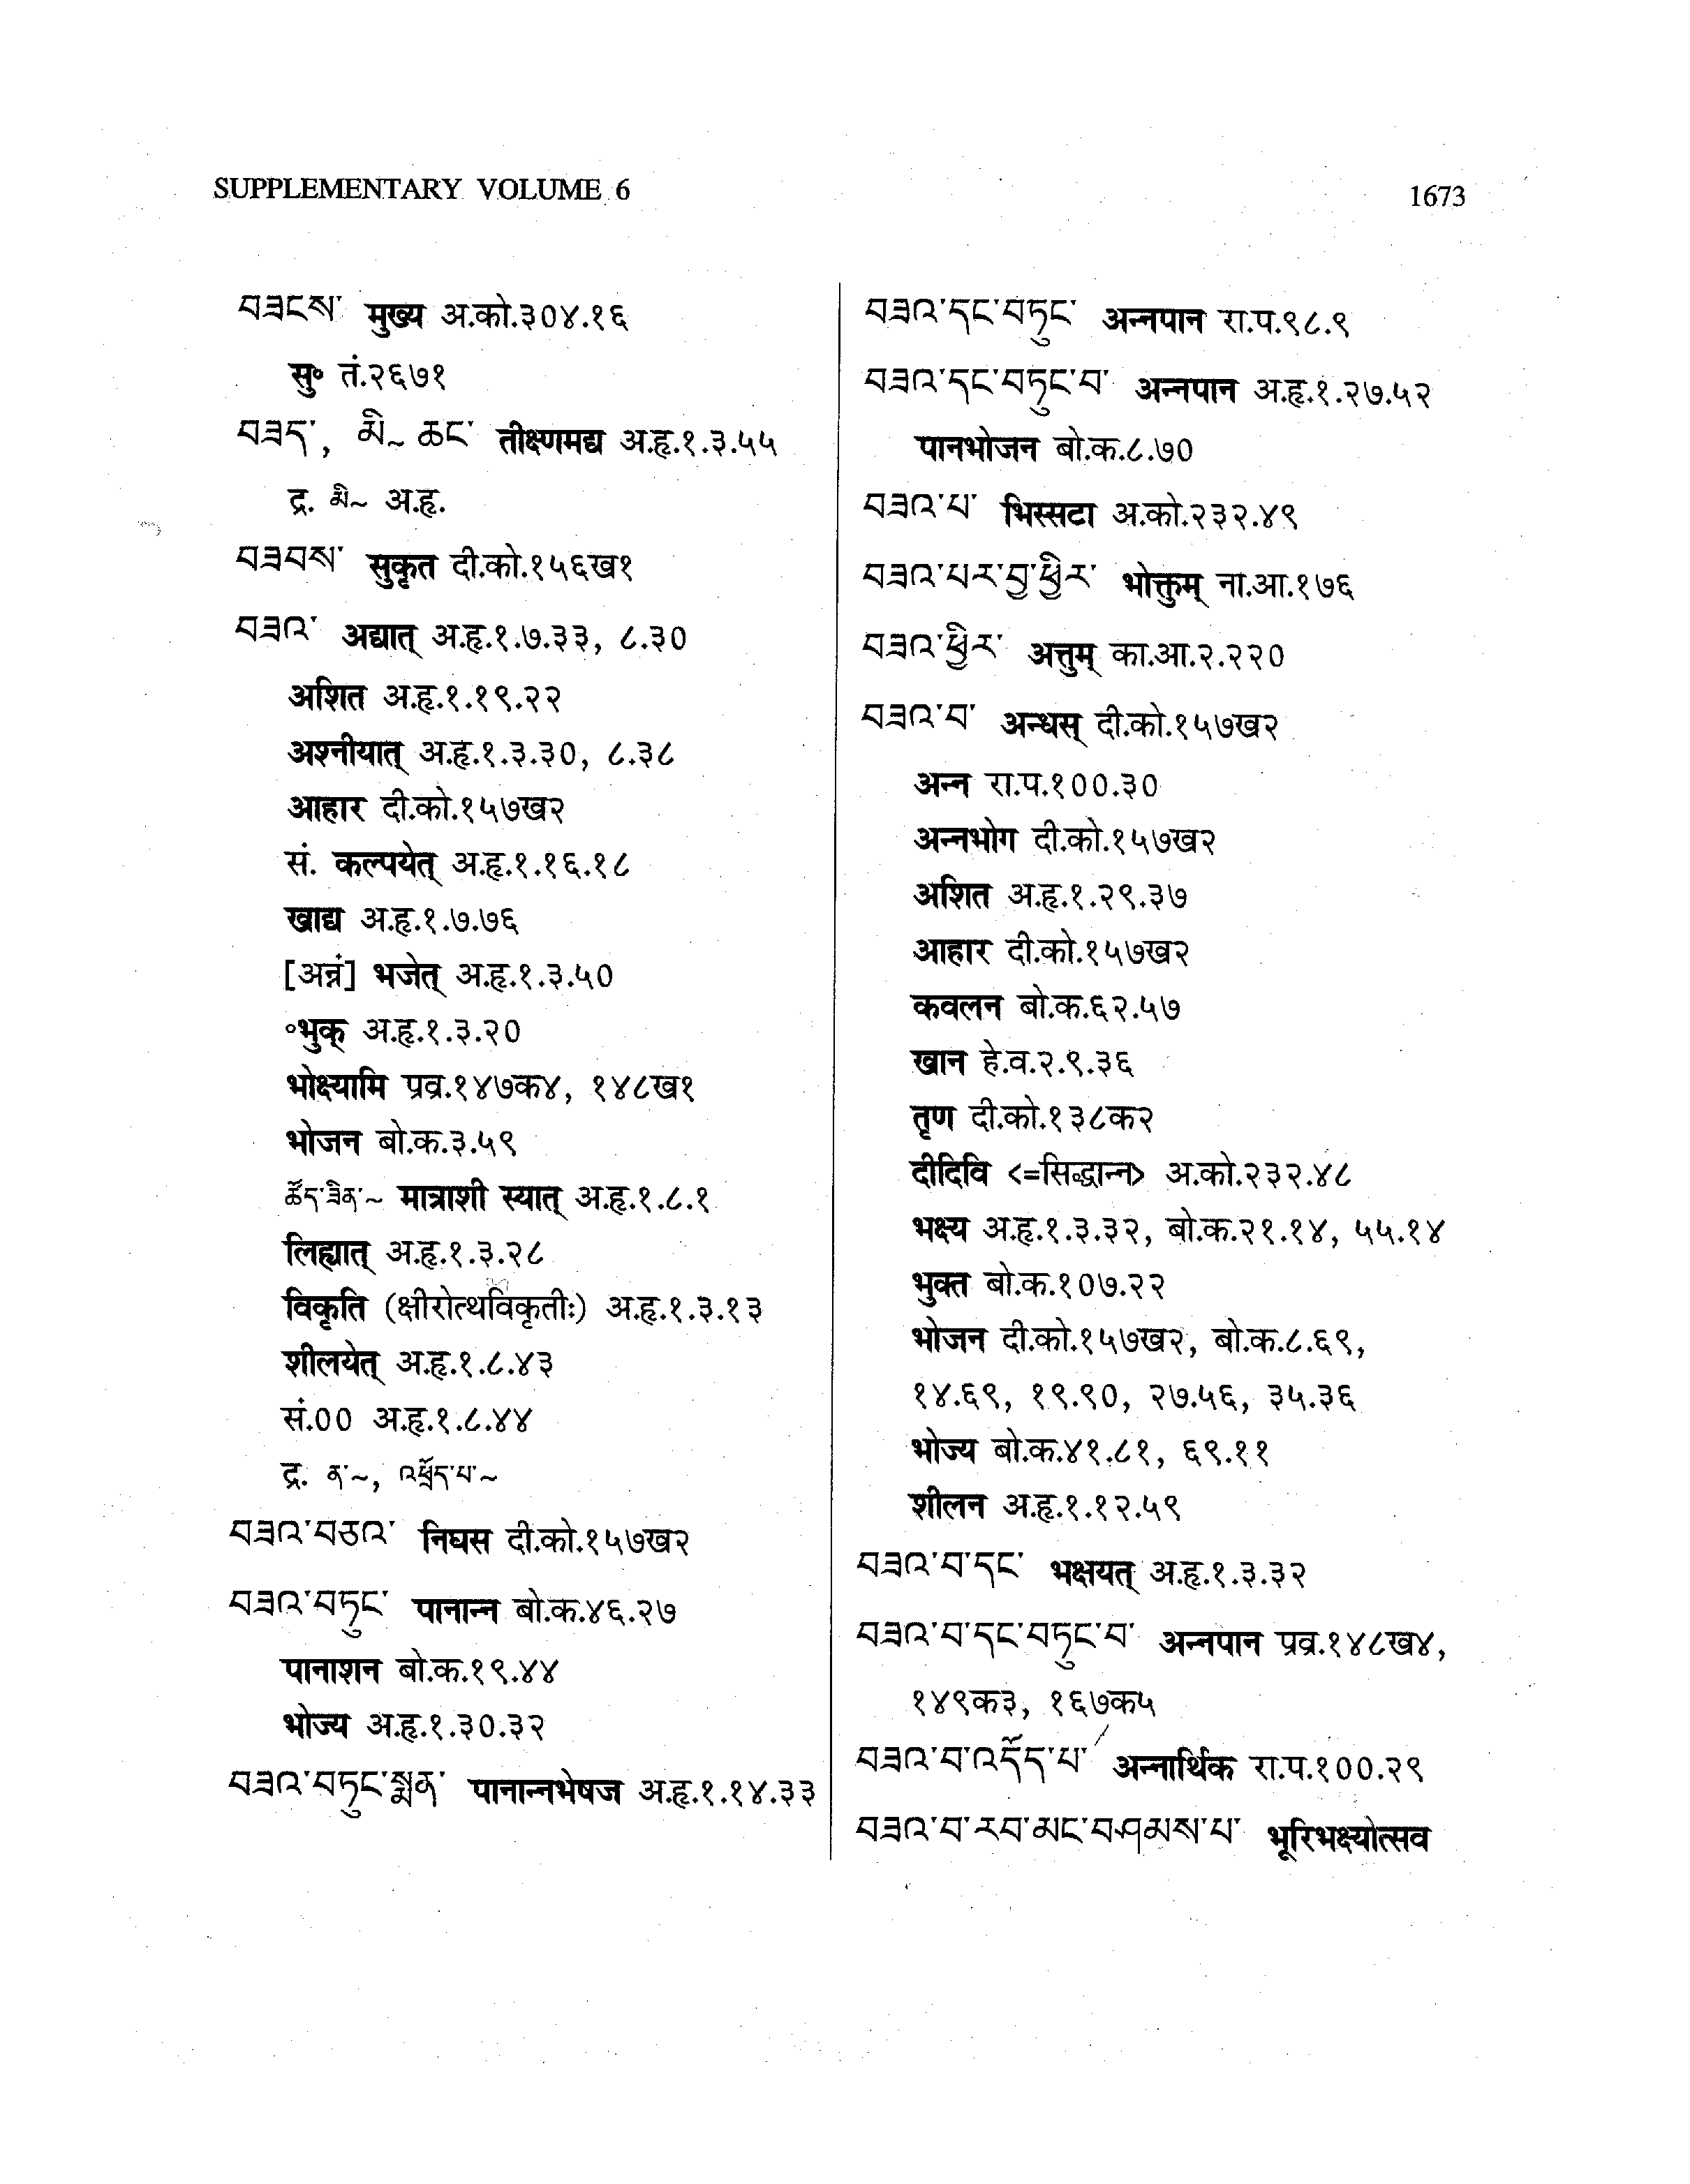 SUPPLEMENTARY VOLUME 6
1673
བཟངས་ मुख्य अ.को.३०४.१६
सु० तं.२६७१
བཟད་, མི་~ ཆང་ तीक्ष्णमद्य अ.हृ.१.३.५५
द्र. མི་~ अ.हृ.
བཟབས་ सुकृत दी.को.१५६ख१
བཟའ་ अद्यात् अ.हृ.१.७.३३, ८.३०
अशित अ.हृ.१.१९.२२
अश्नीयात् अ.हृ.१.३.३०, ८.३८
आहार दी.को.१५७ख२
सं. कल्पयेत् अ.हृ.१.१६.१८
खाद्य अ.हृ.१.७.७६
[अन्नं] भजेत् अ.हृ.१.३.५०
॰भुक् अ.हृ.१.३.२०
भोक्ष्यामि प्रव्र.१४७क४, १४८ख१
भोजन बो.क.३.५९
ཚོད་ཟིན་~ मात्राशी स्यात् अ.हृ.१.८.१
लिह्यात् अ.हृ.१.३.२८
विकृति (क्षीरोत्थविकृतीः) अ.हृ.१.३.१३
शीलयेत् अ.हृ.१.८.४३
सं.00 अ.हृ.१.८.४४
द्र. ན་~, འཕྲོད་པ་~
བཟའ་བཅའ་ निघस दी.को.१५७ख२
བཟའ་བཏུང་ पानान्न बो.क.४६.२७
पानाशन बो.क.१९.४४
भोज्य अ.हृ.१.३०.३२
བཟའ་བཏུང་སྨན་ पानान्नभेषज अ.हृ.१.१४.३३
བཟའ་དང་བཏུང་ अन्नपान रा.प.९८.९
བཟའ་དང་བཏུང་བ་ अन्नपान अ.हृ.१.२७.५२
पानभोजन बो.क.८.७०
བཟའ་པ་ भिस्सटा अ.को.२३२.४९
བཟའ་པར་བྱ་ཕྱིར་ भोक्तुम् ना.आ.१७६
བཟའ་ཕྱིར་ अत्तुम् का.आ.२.२२०
བཟའ་བ་ अन्धस् दी.को.१५७ख२
अन्न रा.प.१००.३०
अन्नभोग दी.को.१५७ख२
अशित अ.हृ.१.२९.३७
आहार दी.को.१५७ख२
कवलन बो.क.६२.५७
खान हे.व.२.९.३६
तृण दी.को.१३८क२
दीदिवि <=सिद्धान्न> अ.को.२३२.४८
भक्ष्य अ.हृ.१.३.३२, बो.क.२१.१४, ५५.१४
भुक्त बो.क.१०७.२२
भोजन दी.को.१५७ख२, बो.क.८.६९,
१४.६९, १९.९०, २७.५६, ३५.३६
भोज्य बो.क.४१.८१, ६९.११
शीलन अ.हृ.१.१२.५९
བཟའ་བ་དང་ भक्षयत् अ.हृ.१.३.३२
བཟའ་བ་དང་བཏུང་བ་ अन्नपान प्रव्र.१४८ख४,
१४९क३, १६७क५
བཟའ་བ་འདོད་པ་ अन्नार्थिक रा.प.१००.२९
བཟའ་བ་རབ་མང་བཤམས་པ་ भूरिभक्ष्योत्सव